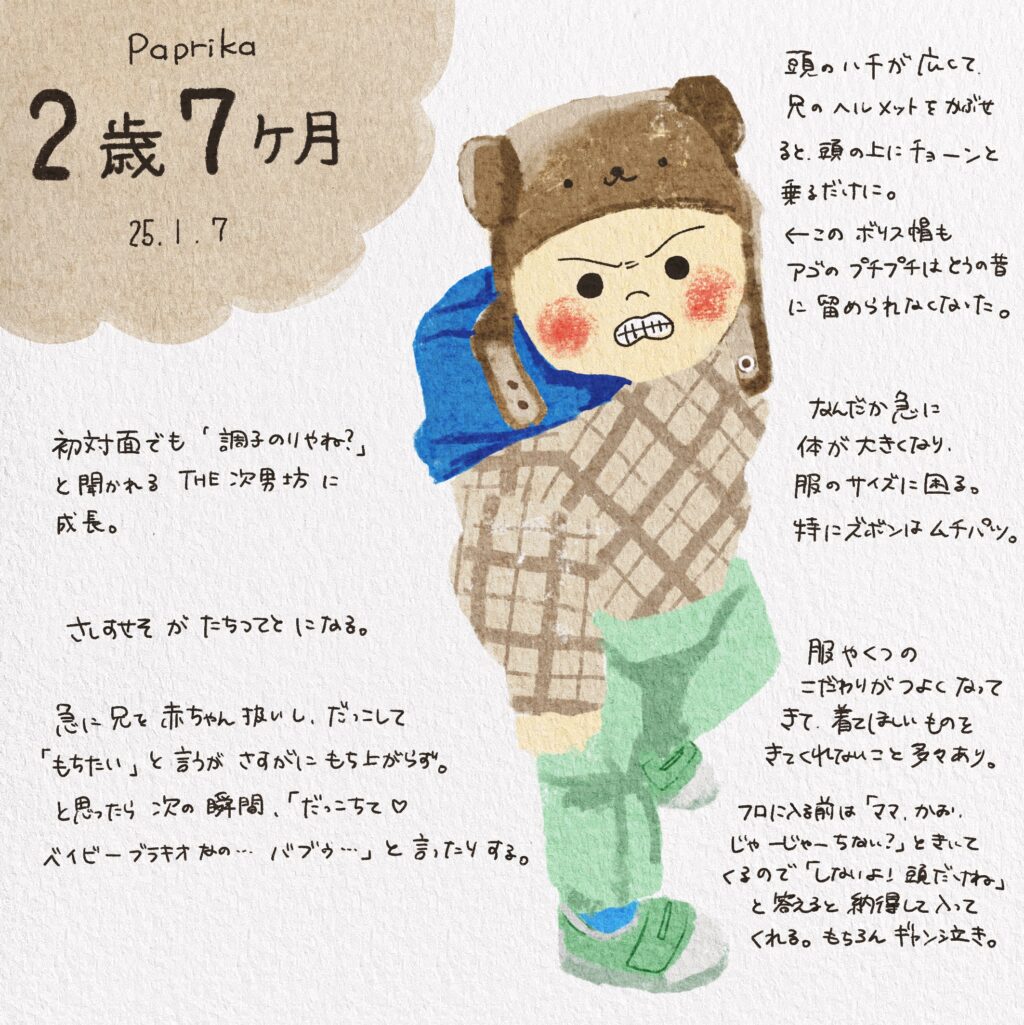 Paprika
2歳7ケ月
25.1.7
頭のハチが広くて、
兄のヘルメットをかぶせ
ると、頭の上にチョーンと
乗るだけに。
←この ボリス帽も
アゴの プチプチはとうの昔
に留められなくなった。
なんだか急に
体が大きくなり、
服のサイズに困る。
特にズボンはムチパツ。
初対面でも「調子のりやね?」
と聞かれる THE 次男坊に
成長。
さしすせそ が たちつてと になる。
急に兄を赤ちゃん扱いし、だっこして
「もちたい」と言うが さすがに もち上がらず。
と思ったら 次の瞬間、「だっこちて♡
ベイビーブラキオなの… バブゥ…」と言ったりする。
服やくつの
こだわりがつよくなって
きて、着てほしいものを
きてくれないこと多々あり。
フロに入る前は「ママ、かお、
じゃーじゃーちない?」ときいて
くるので「しないよ!頭だけね」
と答えると納得して入って
くれる。もちろんギャン泣き。